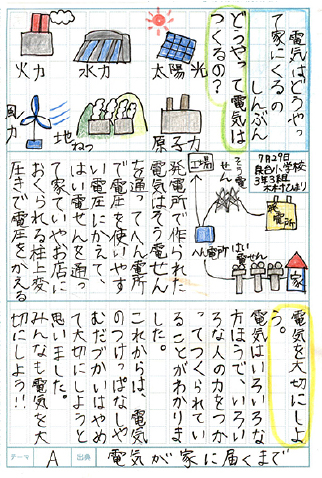 電気はどうやっ
て家にくるの
しんぶん
どうやって電気は
つくるの？
太陽光
水力
火力
原子力
地ねつ
風力
7月29日
小学校
3年3組
発電所
そう電せん
工場
へん電所
はい電せん
家
発電所で作られた
電気はそう電せん
を通ってへん電所
で電圧を使いやす
い電圧にかえて、
はい電せんを通っ
て家ていやお店に
おくられる柱上変
圧きで電圧をかえる
電気を大切にしよ
う。
電気はいろいろな
方ほうで、いろい
ろな人の力をつか
ってつくられてい
ることがわかりま
した。
これからは、電気
のつけっぱなしや
むだづかいはやめ
て大切にしようと
思いました。
みんなも電気を大
切にしよう!!
テーマ A 出典 電気が家に届くまで